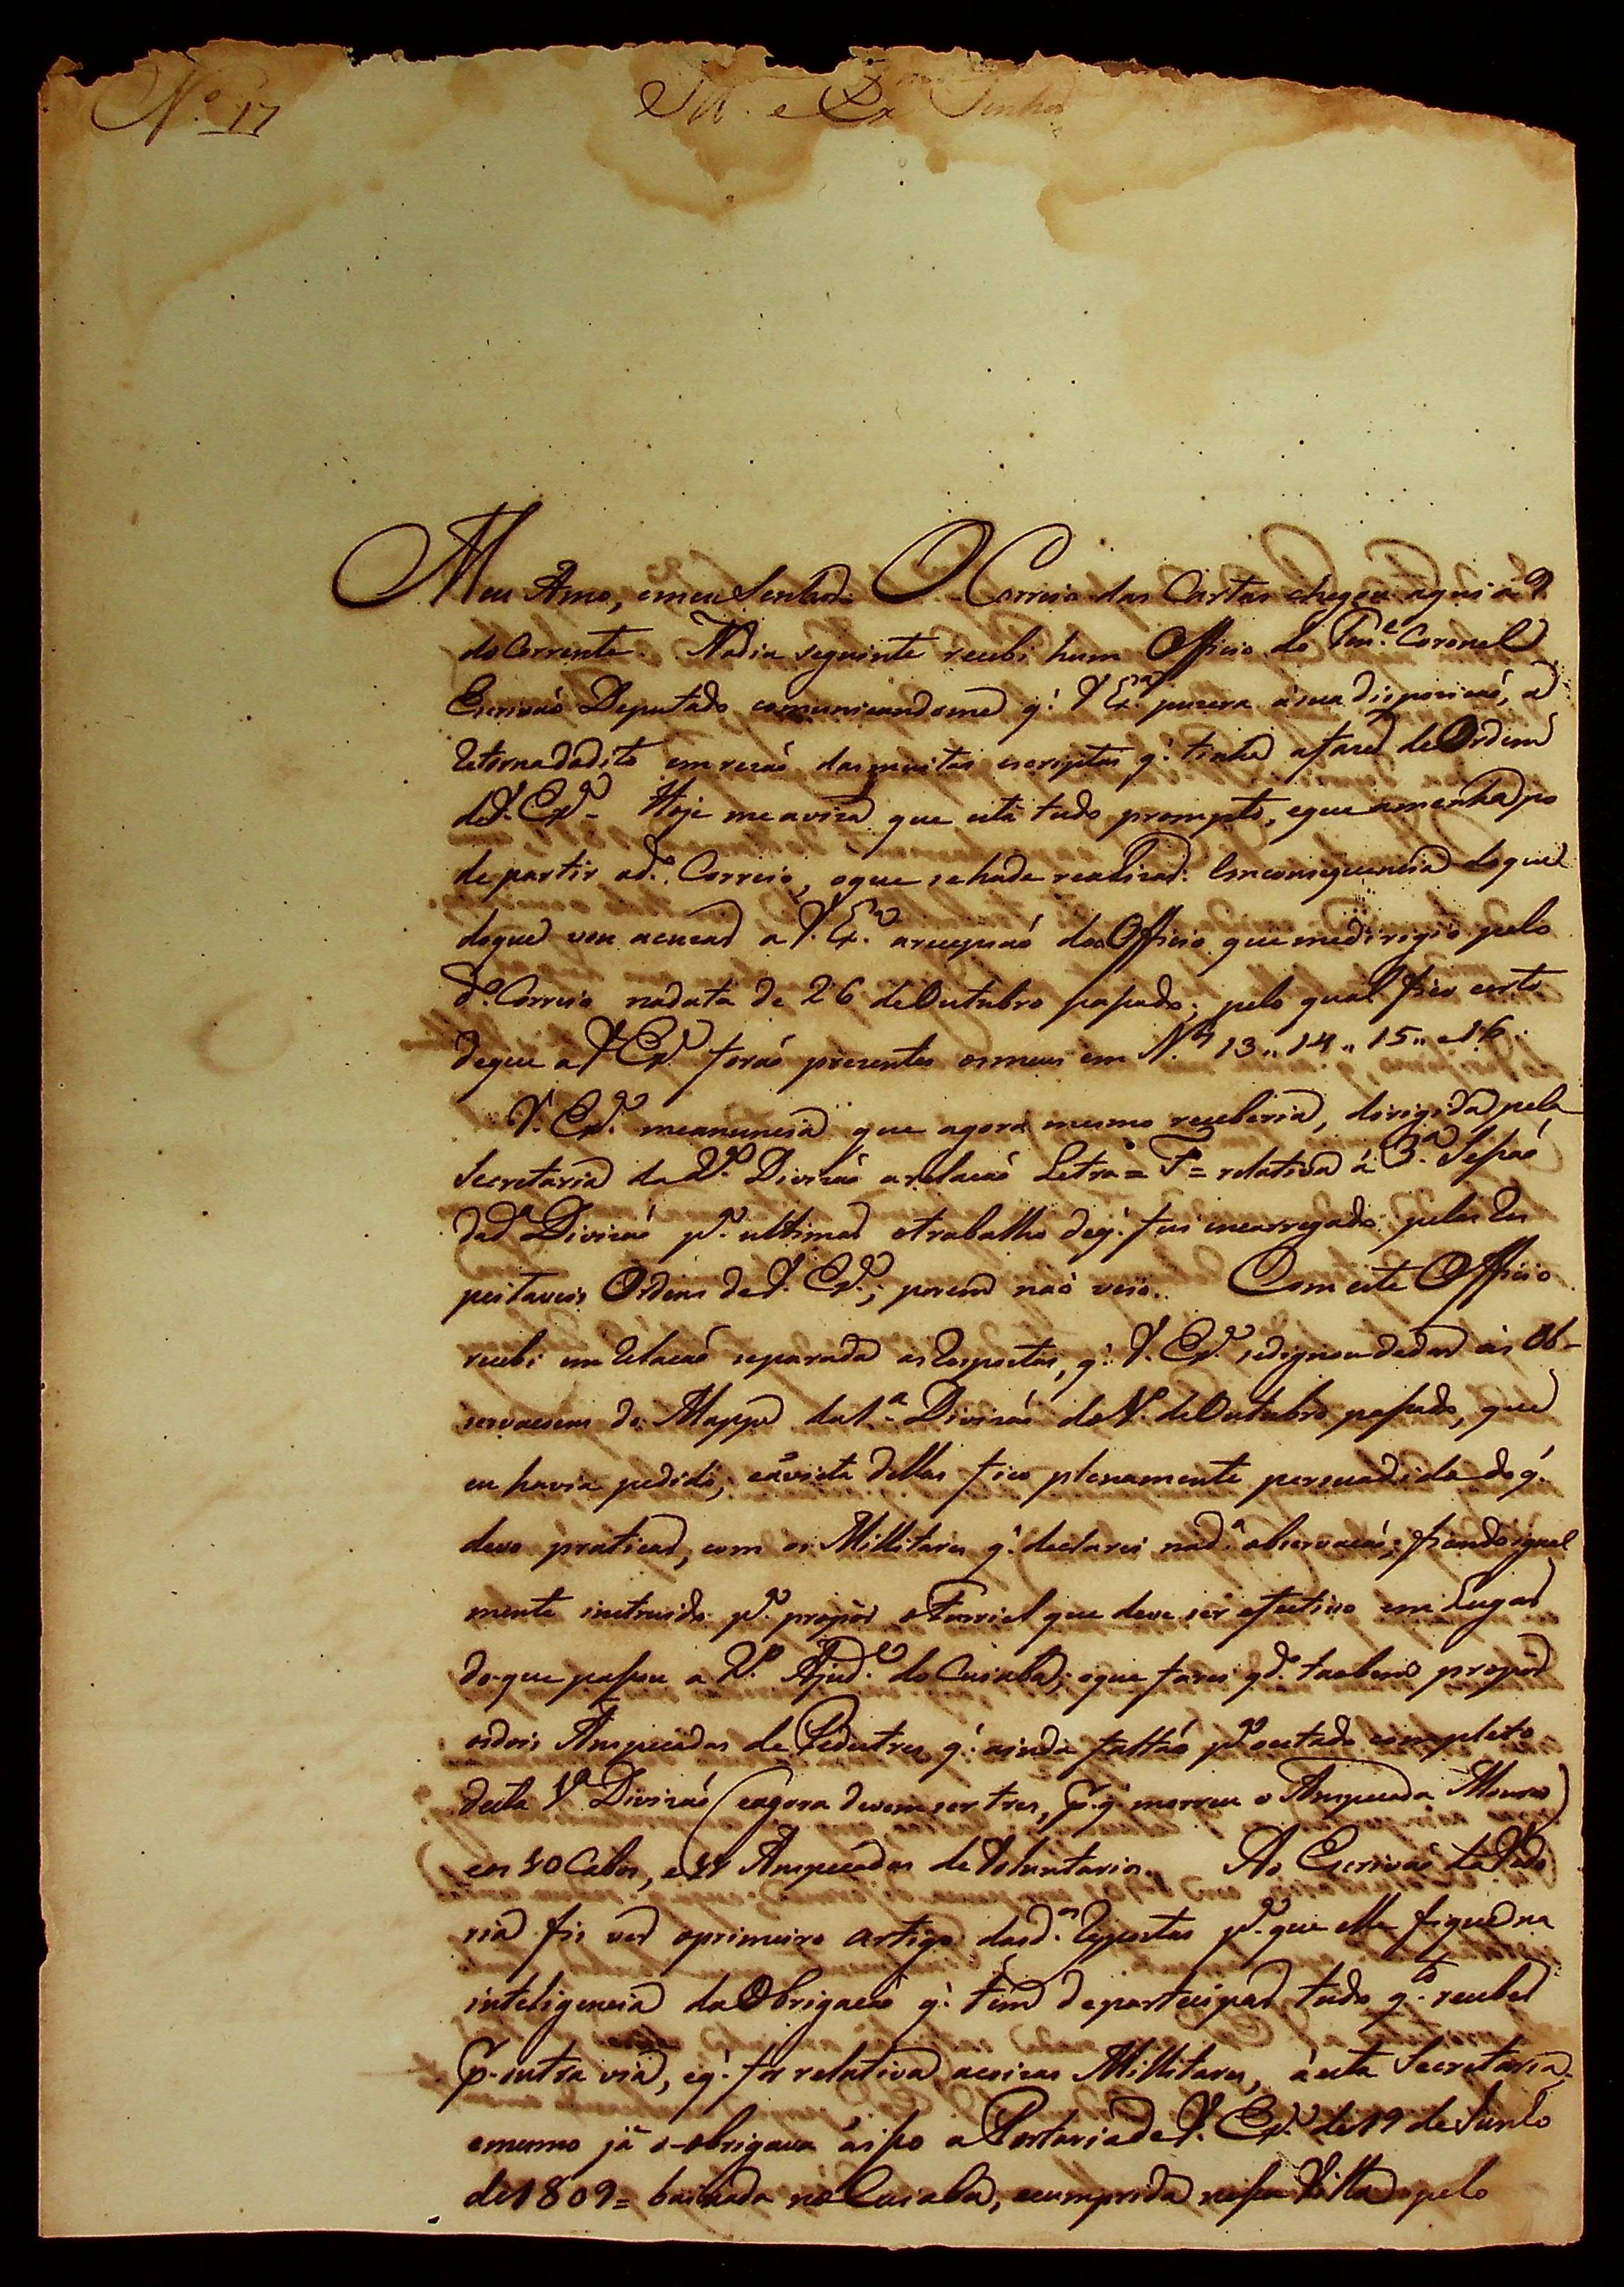 N.º 17
Ill. e Ex.mo Senhor
Meu Amo, emeu Senhor O Correio das Cartas chegou aqui a 9
do Corrente. Nodia seguinte recebi hum Officio do Ten.e Coronel
Escrivaõ Deputado comunicandome q. V. Ex.a puzera ásua dispozicaõ, a
retornadadito emrezaõ dasmuitas escriptas q. tinha afazer deOrdem
deV. Ex.a Hoje meaviza que está tudo prompto, eque amenhã po
de partir od.º Correio, oque sehade realizar. Emconsequencia doque
doque vou acuzar a V. Ex.a arecepcaõ do Officio que medirigio pelo
d.º Correio nadata de 26 deOutubro passado; pelo qual fico certo
deque a V. Ex.a foraõ prezentes osmeus em N.os 13,, 14,, 15,, e16.
V. Ex.a meanuncia que agora mesmo receberia, dirigida pela
Secretaria da Divizaõ arelacaõ Letra = F = relativa á 3.a Sessaõ
dad.a Divizaõ p.a ultimar otrabalho deq. fui encarregado pelas Res
peitaveis Ordens deV. Ex.a; porem naõ veio. Com este Officio
recebi em Relacaõ separada as Respostas, q. V. Ex.a sedignou dedar ás Ob-
servacoens do Mappa da1.a Divizaõ do 1.º deOutubro passado, que
eu havia pedido; eávista dellas fico plenamente persuadido doq.
devo praticar, com os Millitares q. declarei nad.a observacaõ; ficando igual
mente instruido p.a propôr oFurriel que deve ser efectivo em Lugar
do que passou a Ajud.e do Cuiabá; oque farei q.do taobem propôr
osdois Anspecadas de Pedestres q. ainda faltaõ p.a oestado completo
desta Divizaõ (eagora devem ser tres, p.q. morreu o Anspecada Moura)
eos 10 Cabos, e Anspecadas de Voluntarios. Ao Escrivaõ da Vedo
ria fiz ver oprimeiro artigo dasd.as Respostas p.a que elle fique na
inteligencia daObrigacaõ q. tem departecipar tudo q.to receber
p. outra via, eq. for relativo acoizas Millitares, áesta Secretaria
emesmo já o-obrigava áisso a Portaria de V. Ex.a de19 deJunho
de1809 = baixada no Cuiabá, ecumprida nessa Villa pelo